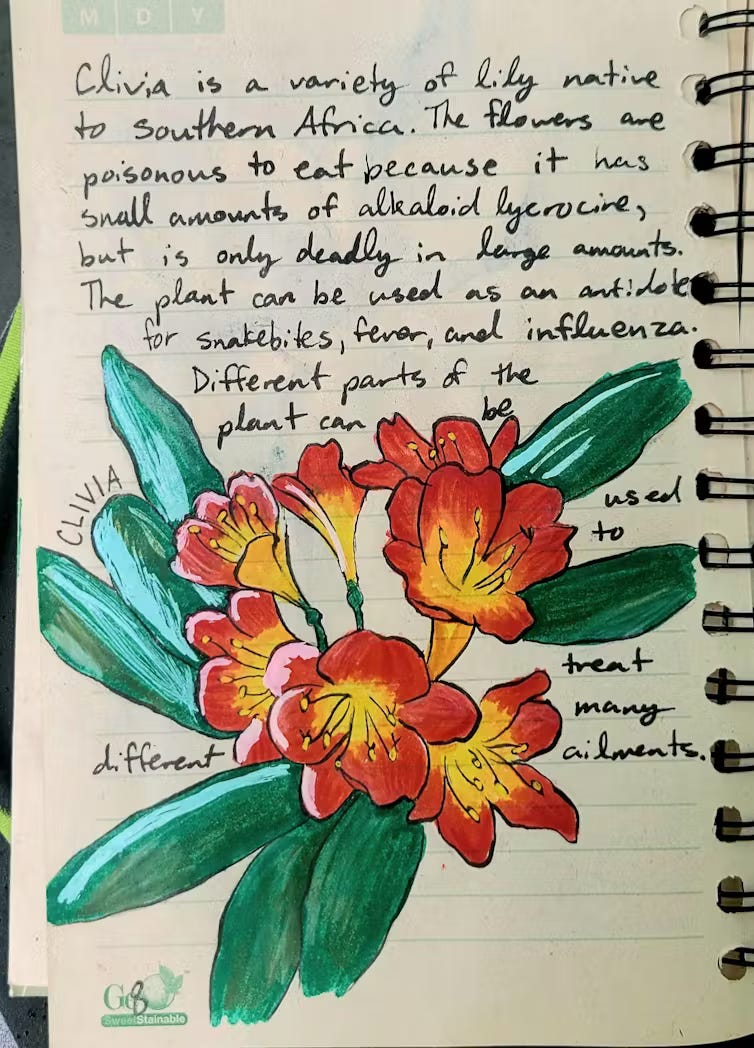 M D Y
Clivia is a variety of lily native
to Southern Africa. The flowers are
poisonous to eat because it has
small amounts of alkaloid lycrocire,
but is only deadly in large amounts.
The plant can be used as an antidote
for snakebites, fever, and influenza.
Different parts of the
plant can be
used
to
treat
many
different ailments.
CLIVIA
Go
8
SweetStainable